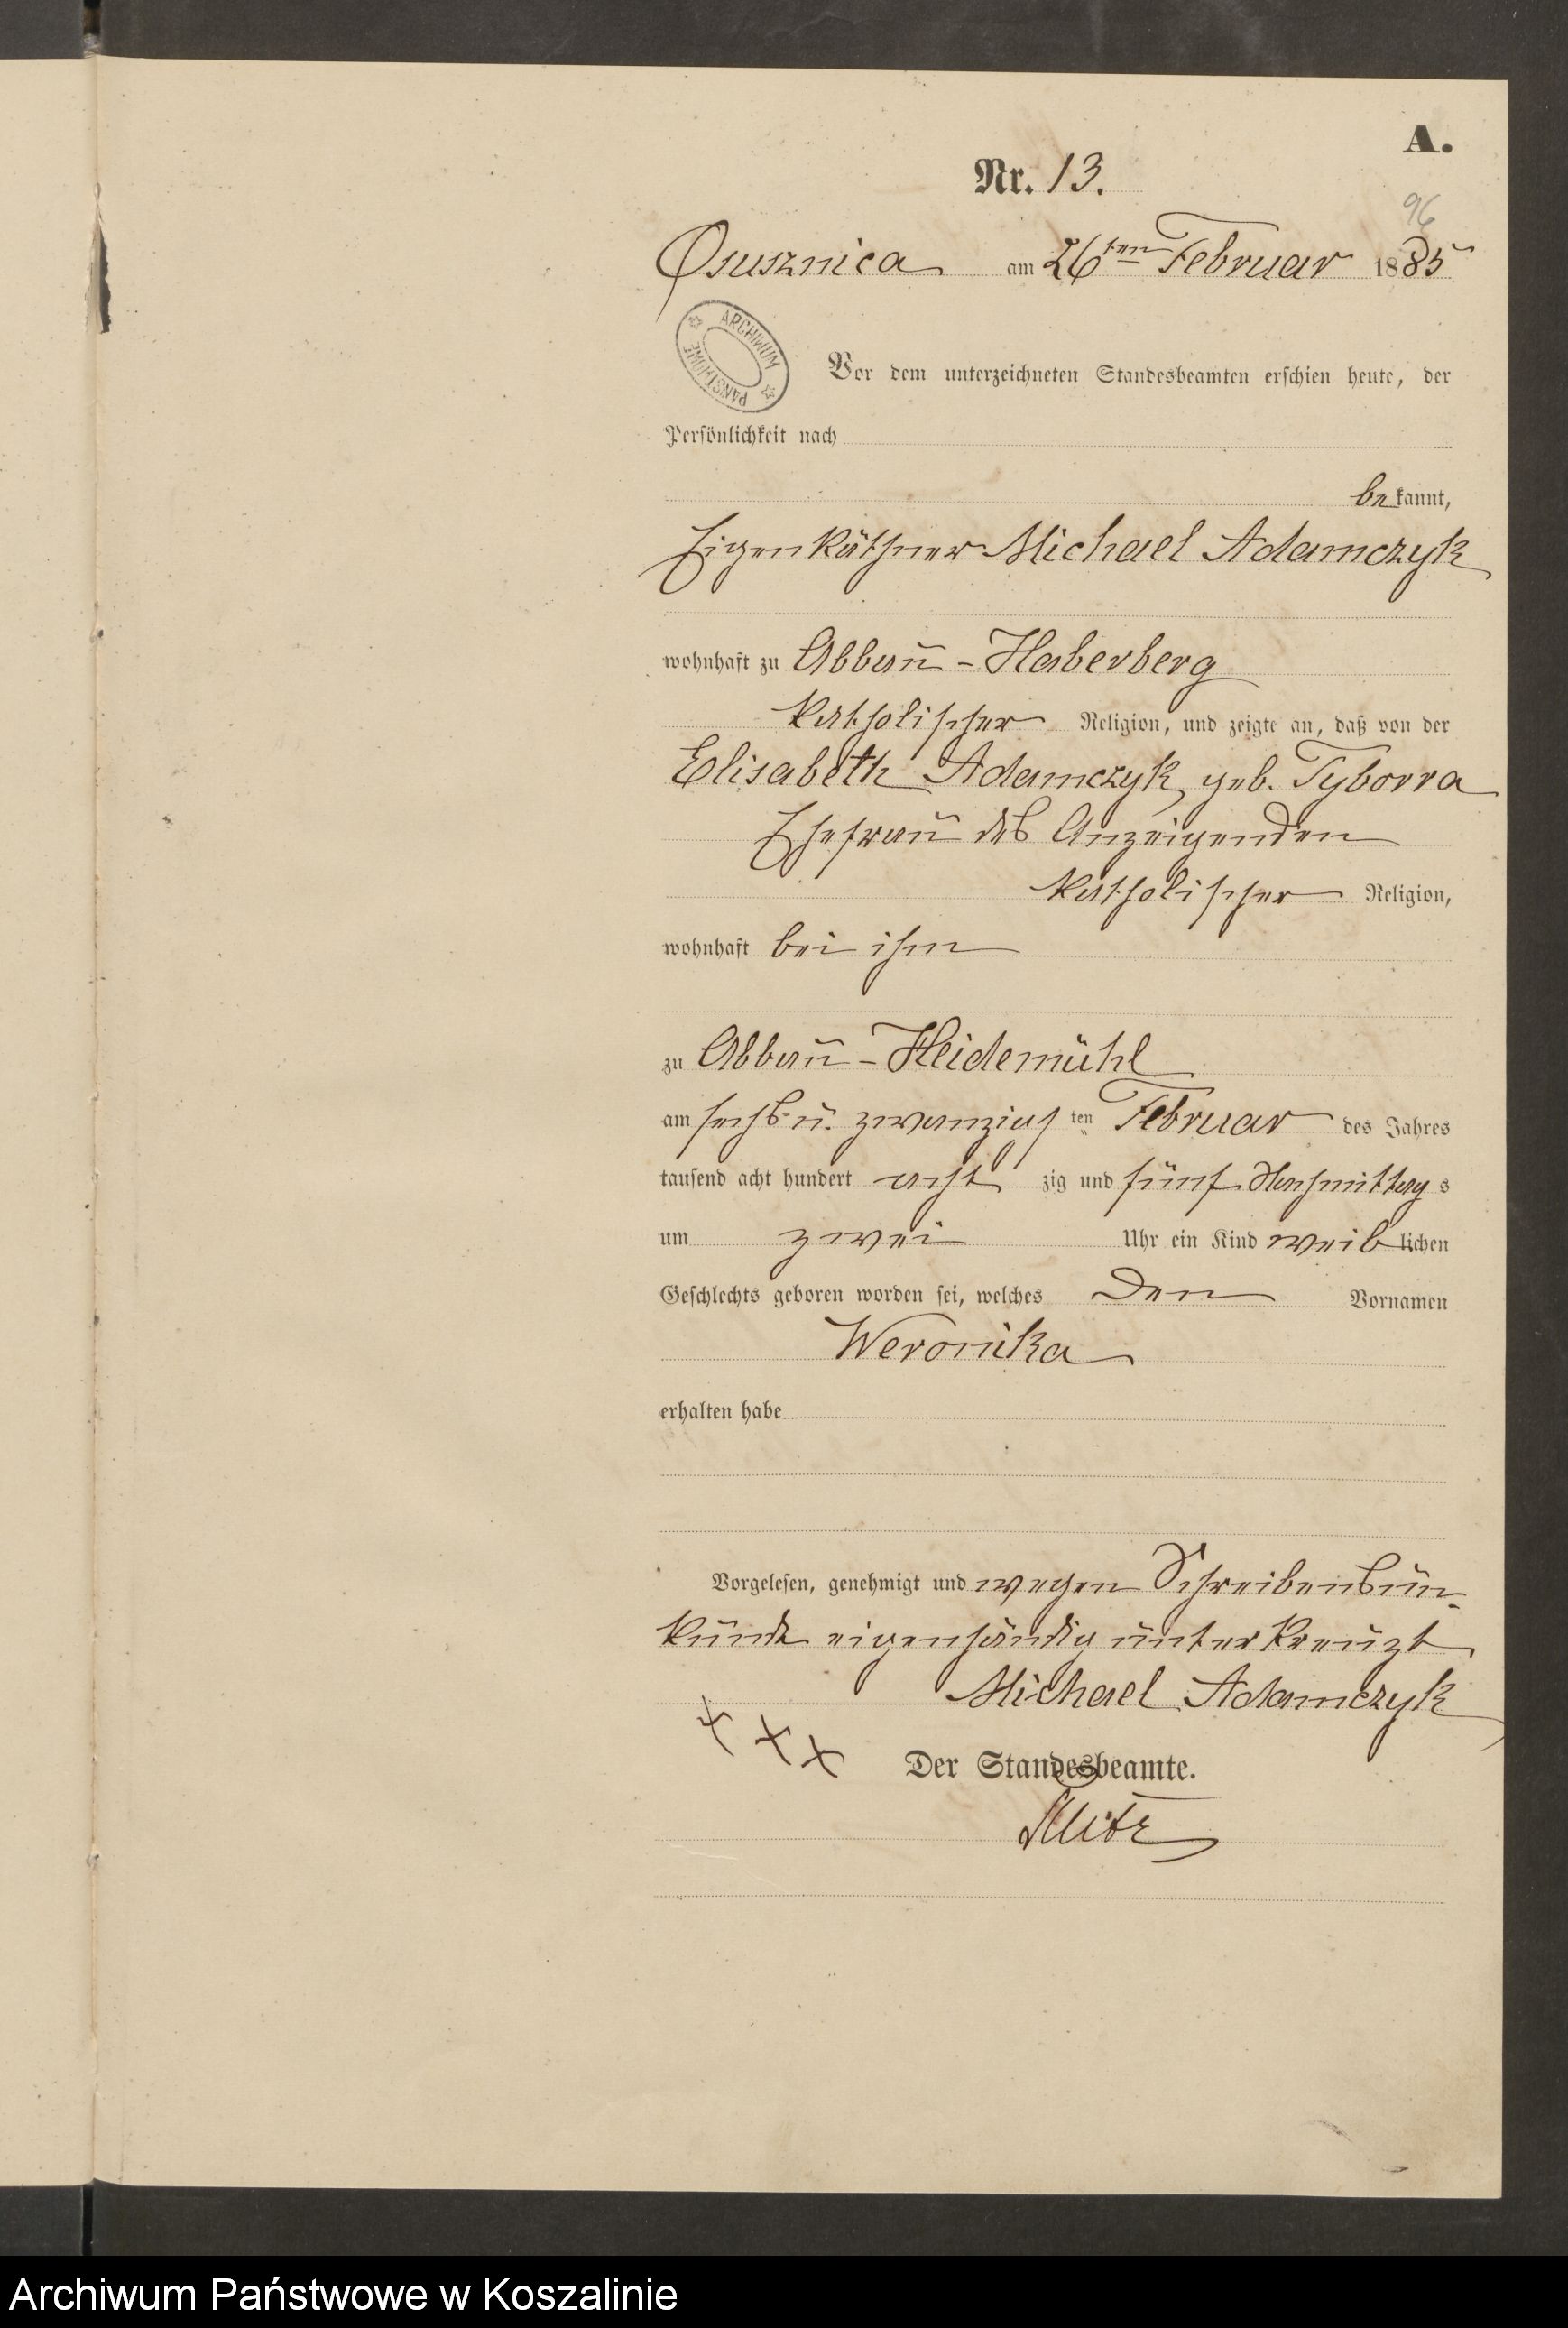 A.
Nr. 13.
96
Osusznica am 26ten Februar 1885
ARCHIWUM PAŃSTWOWE
Vor dem unterzeichneten Standesbeamten erschien heute, der
Persönlichkeit nach
bekannt,
Eigenkäthner Michael Adamczyk
wohnhaft zu Abbau - Haberberg
katholischer Religion, und zeigte an, daß von der
Elisabeth Adamczyk geb. Tyborra
Ehefrau des Anzeigenden
katholischer Religion,
wohnhaft bei ihm
zu Abbau - Heidemühl
am sechs u. zwanzigsten Februar des Jahres
tausend acht hundert acht zig und fünf Nachmittags
um zwei Uhr ein Kind weiblichen
Geschlechts geboren worden sei, welches den Vornamen
Weronika
erhalten habe
Vorgelesen, genehmigt und wegen Schreibensun-
kunde eigenhändig unterkreuzt
Michael Adamczyk
+ + +
Der Standesbeamte.
Archiwum Państwowe w Koszalinie